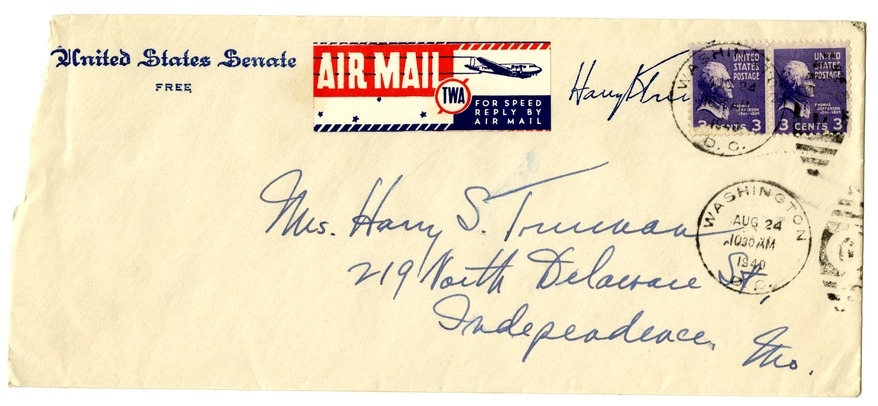 United States Senate
FREE
AIR MAIL
TWA
FOR SPEED
REPLY BY
AIR MAIL
Harry
UNITED
STATES
POSTAGE
THOMAS
JEFFERSON
3 CENTS 3
UNITED
STATES
POSTAGE
THOMAS
JEFFERSON
3 CENTS 3
WASHINGTON
AUG 24
1030 AM
1940
D. C.
Mrs. Harry S. Truman
219 North Delaware St,
Independence,
Mo.